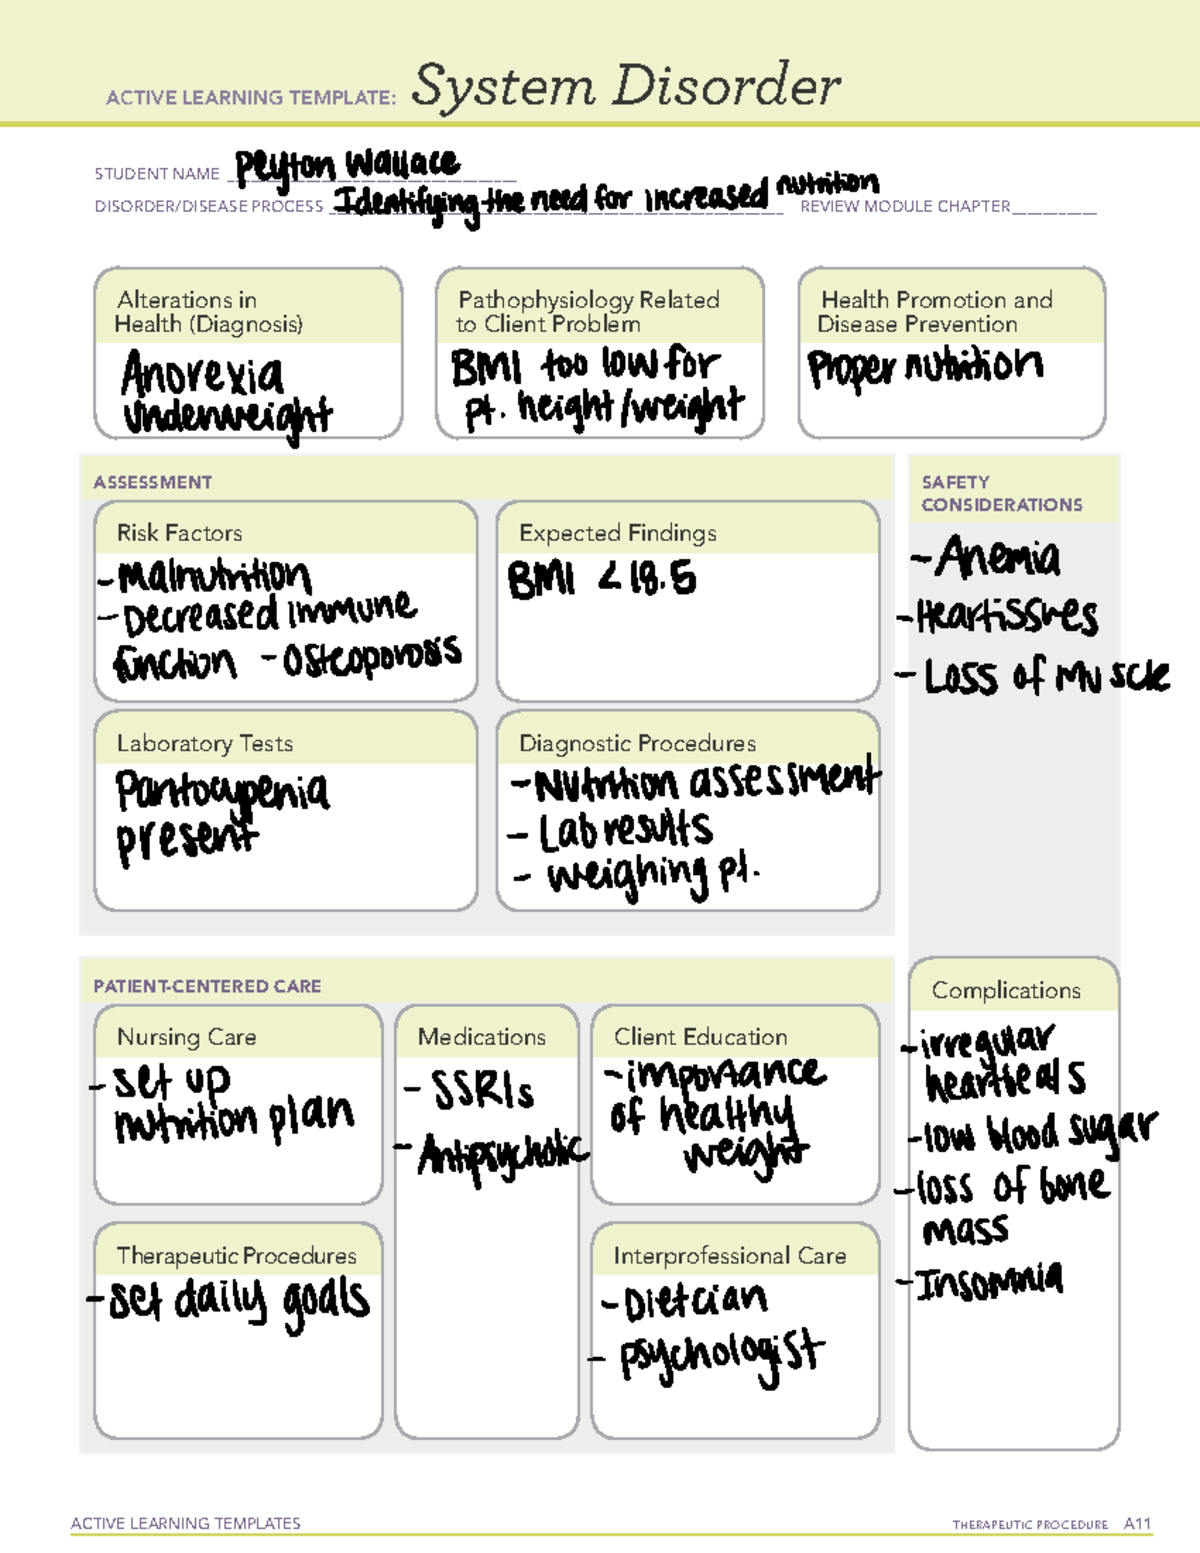 ACTIVE LEARNING TEMPLATE: System Disorder
STUDENT NAME Peyton Wallace
DISORDER/DISEASE PROCESS Identifying the need for increased nutrition REVIEW MODULE CHAPTER
Alterations in
Health (Diagnosis)
Anorexia
underweight
Pathophysiology Related
to Client Problem
BMI too low for
pt. height/weight
Health Promotion and
Disease Prevention
Proper nutrition
ASSESSMENT
Risk Factors
-Malnutrition
-Decreased immune
function -Osteoporosis
Expected Findings
BMI < 18.5
Laboratory Tests
Pantocypenia
present
Diagnostic Procedures
-Nutrition assessment
- Lab results
- weighing pt.
SAFETY
CONSIDERATIONS
-Anemia
-Heart issues
- Loss of Muscle
PATIENT-CENTERED CARE
Nursing Care
- set up
nutrition plan
Medications
- SSRIs
- Antipsychotic
Client Education
-importance
of healthy
weight
Therapeutic Procedures
-set daily goals
Interprofessional Care
-Dietcian
- psychologist
Complications
-irregular
heartbeats
-low blood sugar
-loss of bone
mass
-Insomnia
ACTIVE LEARNING TEMPLATES
THERAPEUTIC PROCEDURE A11